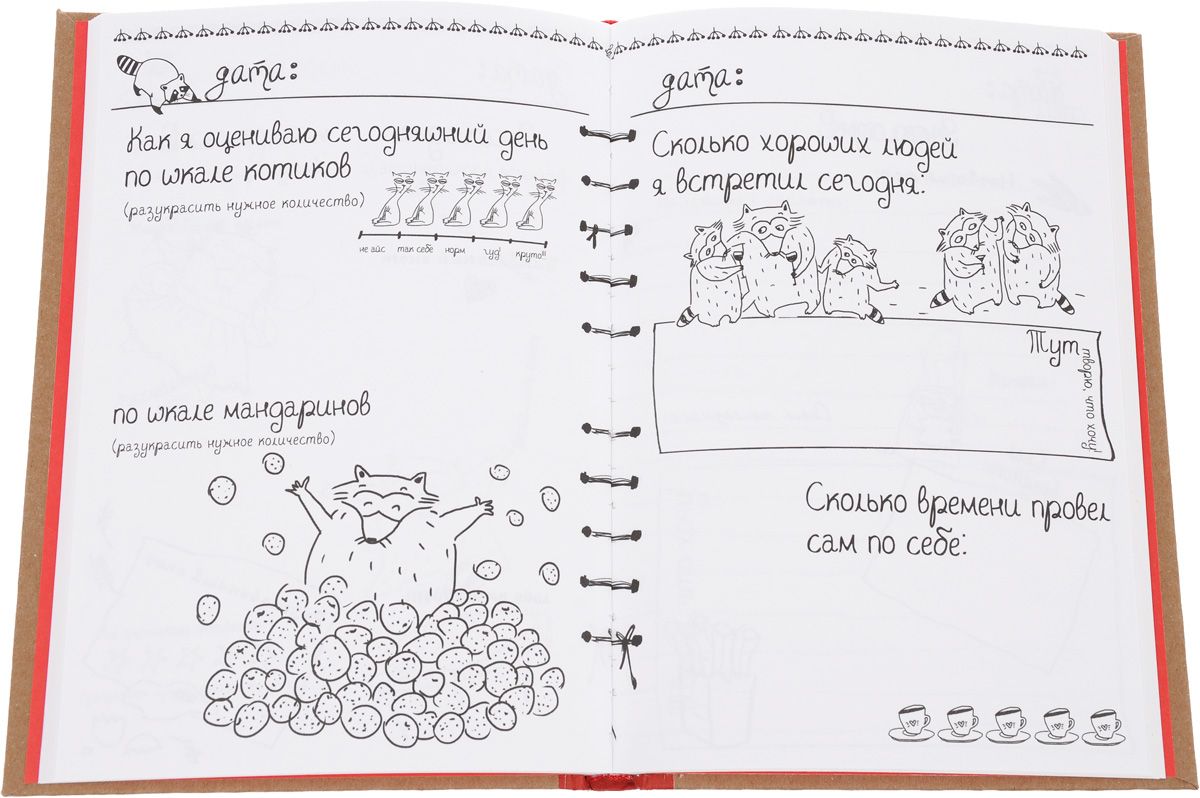 дата:
Как я оцениваю сегодняшний день
по шкале котиков
(разукрасить нужное количество)
не айс так себе норм гуд круто!!!
по шкале мандаринов
(разукрасить нужное количество)
дата:
Сколько хороших людей
я встретил сегодня:
Тут
творю, что хочу!
Сколько времени провел
сам по себе: